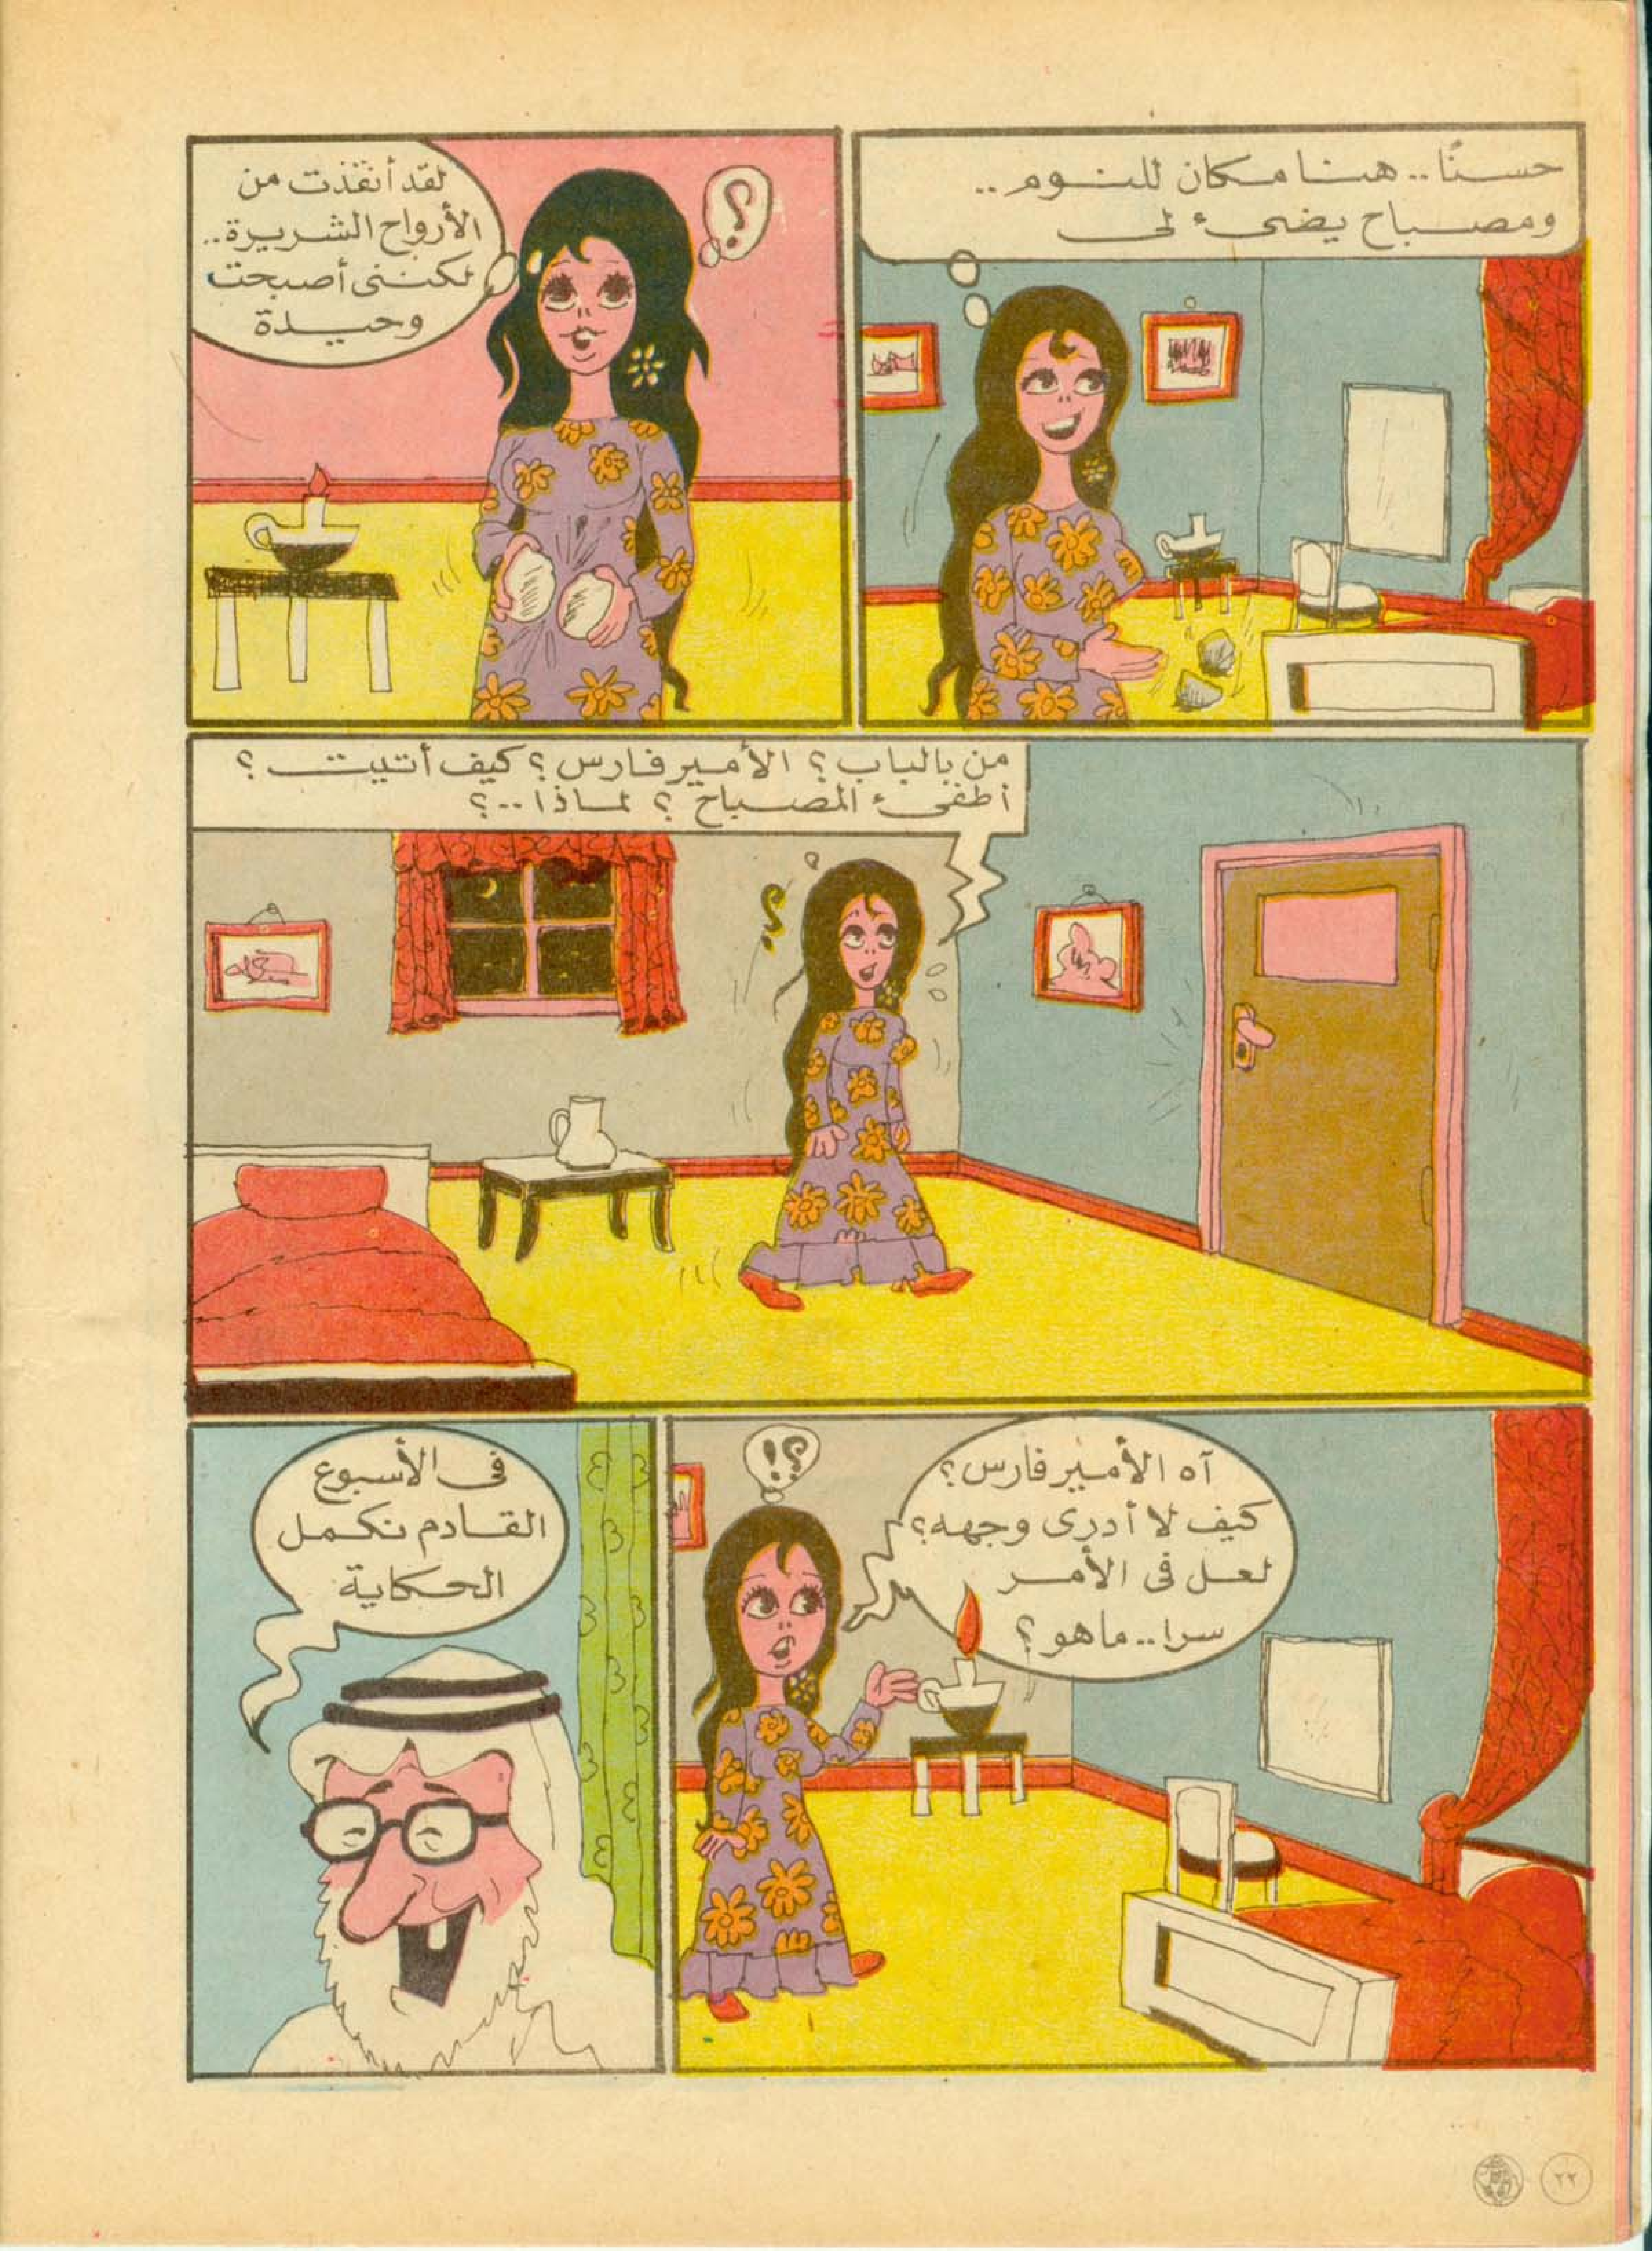 حسنًا.. هنا مكان للنوم..
ومصباح يضىء لى
؟
لقد أنقذت من
الأرواح الشريرة..
لكننى أصبحت
وحيدة
من بالباب؟ الأمير فارس؟ كيف أتيت؟
أطفىء المصباح؟ لماذا..؟
؟
آه الأمير فارس؟
كيف لا أدرى وجهه؟
لعل فى الأمر
سرا.. ما هو؟
؟!
فى الأسبوع
القادم نكمل
الحكاية
٢٢